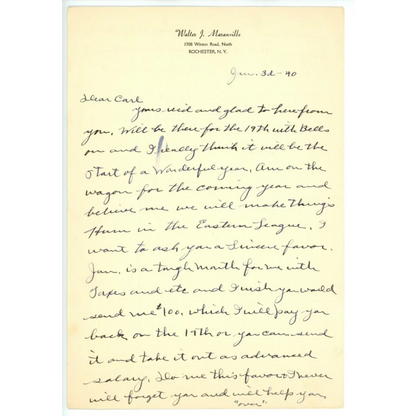 Walter J. Maranville
1708 Winton Road, North
ROCHESTER, N.Y.
Jan. 3d - 40
Dear Carl
yours rec'd and glad to here from
you. Will be there for the 19th with Bells
on and I really think it will be the
start of a Wonderful year. Am on the
wagon for the coming year and
believe me we will make things
Hum in the Eastern League. I
want to ask you a Sincere favor.
Jan. is a tough month for me with
Taxes and etc and I wish you would
send me $100. which I will pay you
back on the 19th or you can send
it and take it out as advanced
salary. Do me this favor I never
will forget you and will help you
"over"